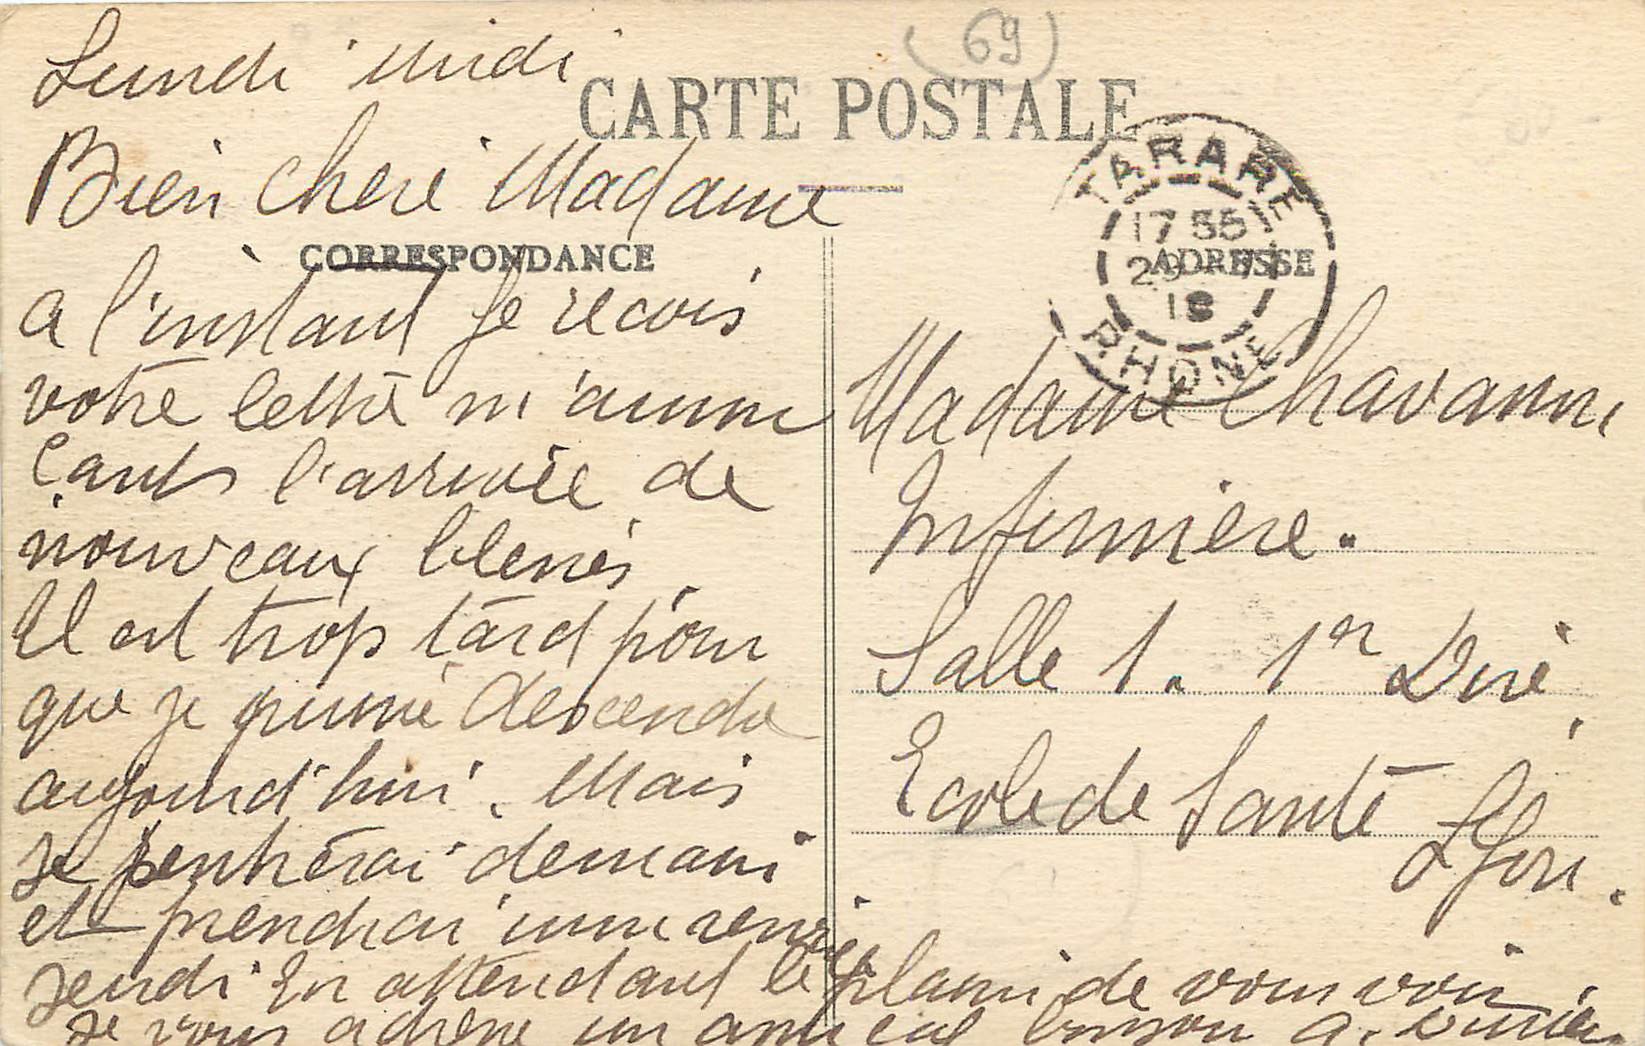 (69)
Lundi midi
CARTE POSTALE
Bien chere Madame
CORRESPONDANCE
a l'instant je recois
votre lettre m'annon
cants l'arrivée de
nouveaux blessés
Il est trop tard pour
que je puisse descendre
aujourd'hui. Mais
je rentrerai demain
et prendrai mon service
jeudi En attendant le plaisir de vous voir
je vous adresse un amical bonjour
TARARE
17 55
ADRESSE
18
RHONE
Madame Chavanne
Infirmière.
Salle 1. 1er Divi
Ecole de Santé
Lyon.